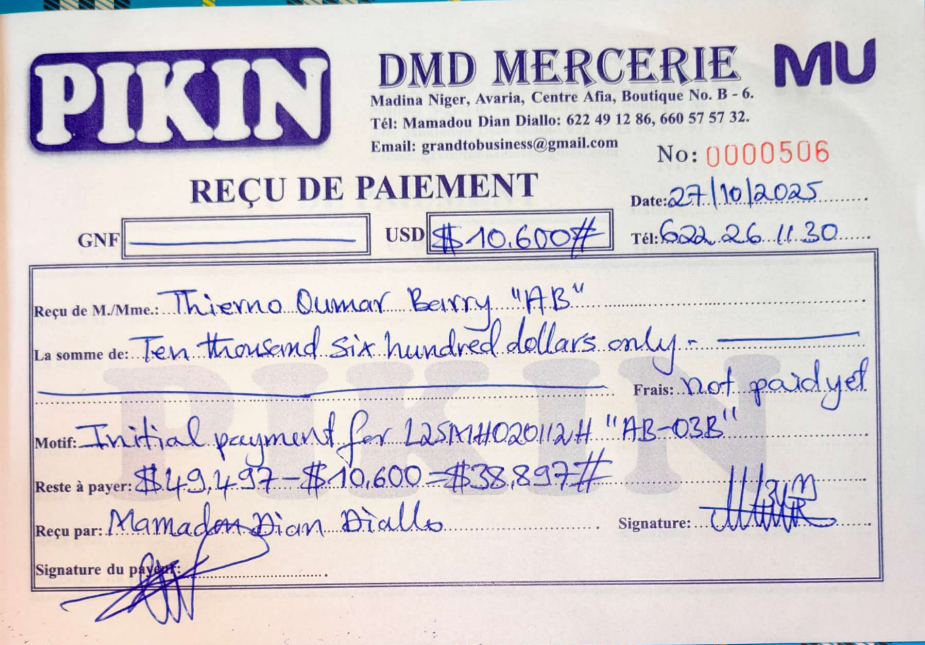 PIKIN
DMD MERCERIE MU
Madina Niger, Avaria, Centre Afia, Boutique No. B - 6.
Tél: Mamadou Dian Diallo: 622 49 12 86, 660 57 57 32.
Email: grandtobusiness@gmail.com
No: 0000506
REÇU DE PAIEMENT
Date: 27/10/2025
GNF USD $10.600#
Tél: 622 26 11 30
Reçu de M./Mme.: Thierno Oumar Barry "AB"
La somme de: Ten thousand six hundred dollars only.-
Frais: not paid yet
Motif: Initial payment for L25MH020112H "AB-03B"
Reste à payer: $49,497-$10,600=$38,897#
Reçu par: Mamadou Dian Diallo
Signature:
Signature du payeur:
PIKIN